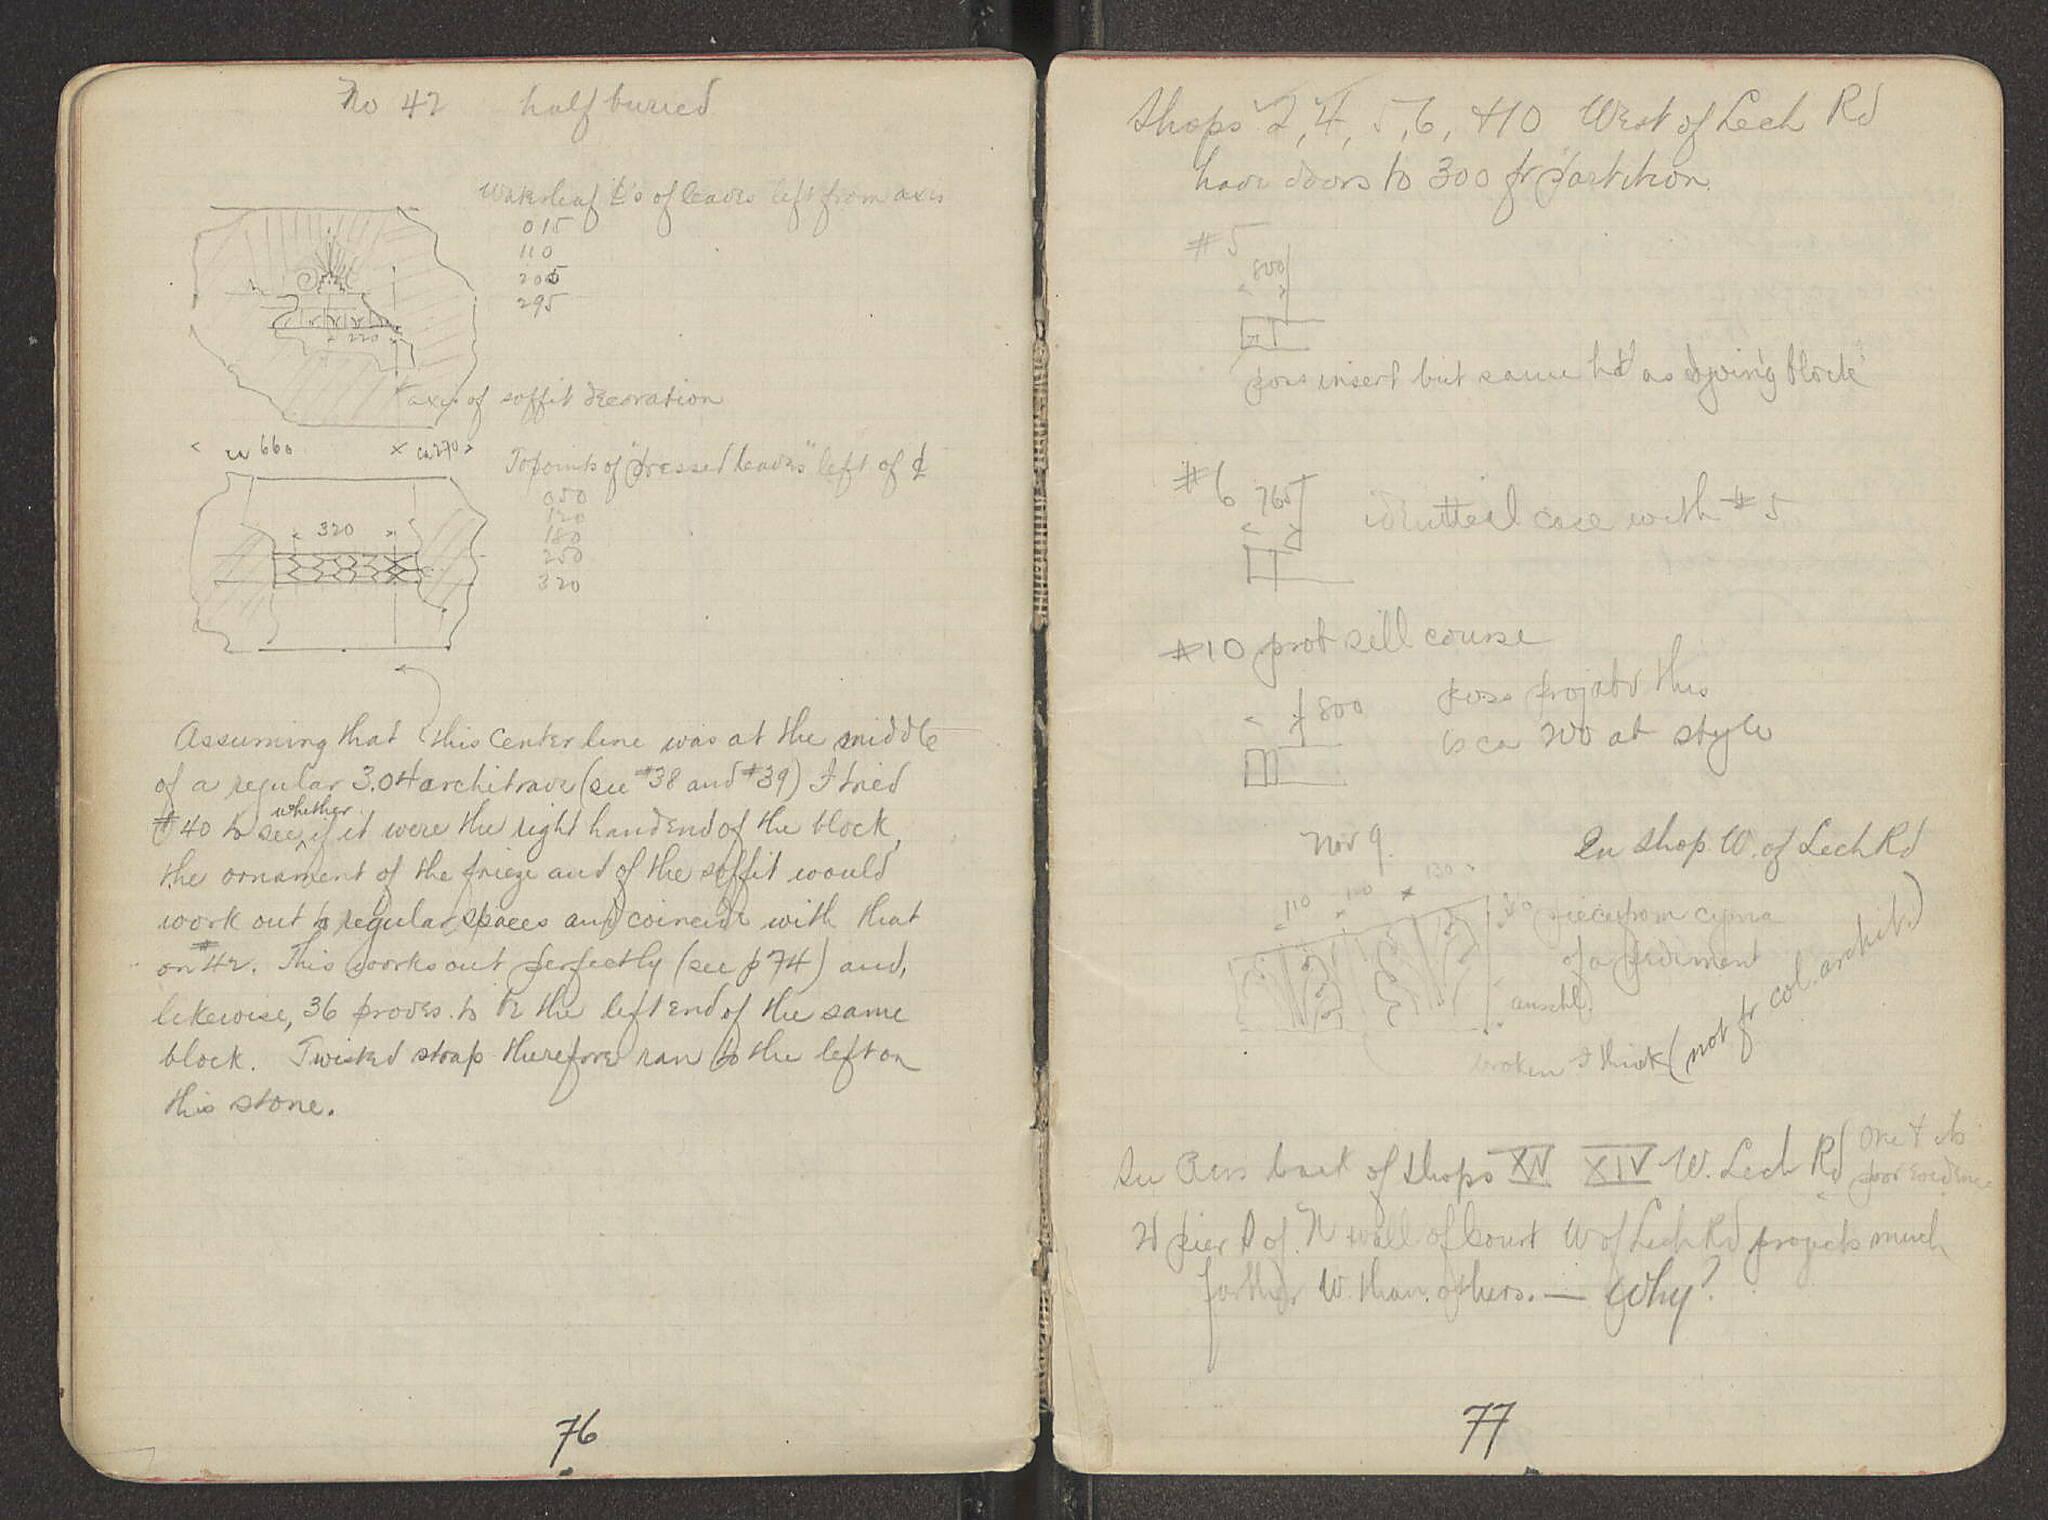 No 42 half buried
Waterleaf ℄'s of leaves left from axis
015
110
205
295
220
axis of soffit decoration
ca 660 ca 270
To points of "dressed leaves" left of ℄
050
120
180
250
320
320
Assuming that this center line was at the middle
of a regular 3.04 architrave (see #38 and #39) I tried
#40 to see whether if it were the right hand end of the block,
the ornament of the frieze and of the soffit would
work out to regular spaces and coincide with that
on #42. This works out perfectly (see p 74) and,
likewise, 36 proves to be the left end of the same
block. Twisted strap therefore ran to the left on
this stone.
76
Shops 2, 4, 5, 6, +10 West of Lech Rd
have doors to 300 fr partition.
#5
800
poss insert but same ht as block
#6 765 case with #5
#10 prob sill course
800 poss this
is ca at style
Nov 9. In shop W. of Lech Rd
110 110 130
piece from cyma
of a pediment
anschl.
broken I think (not fr col. archit.)
In back of shops XV XIV W. Lech Rd
pier of N wall of court W of Lech Rd projects much
farther W. than others. — Why?
77